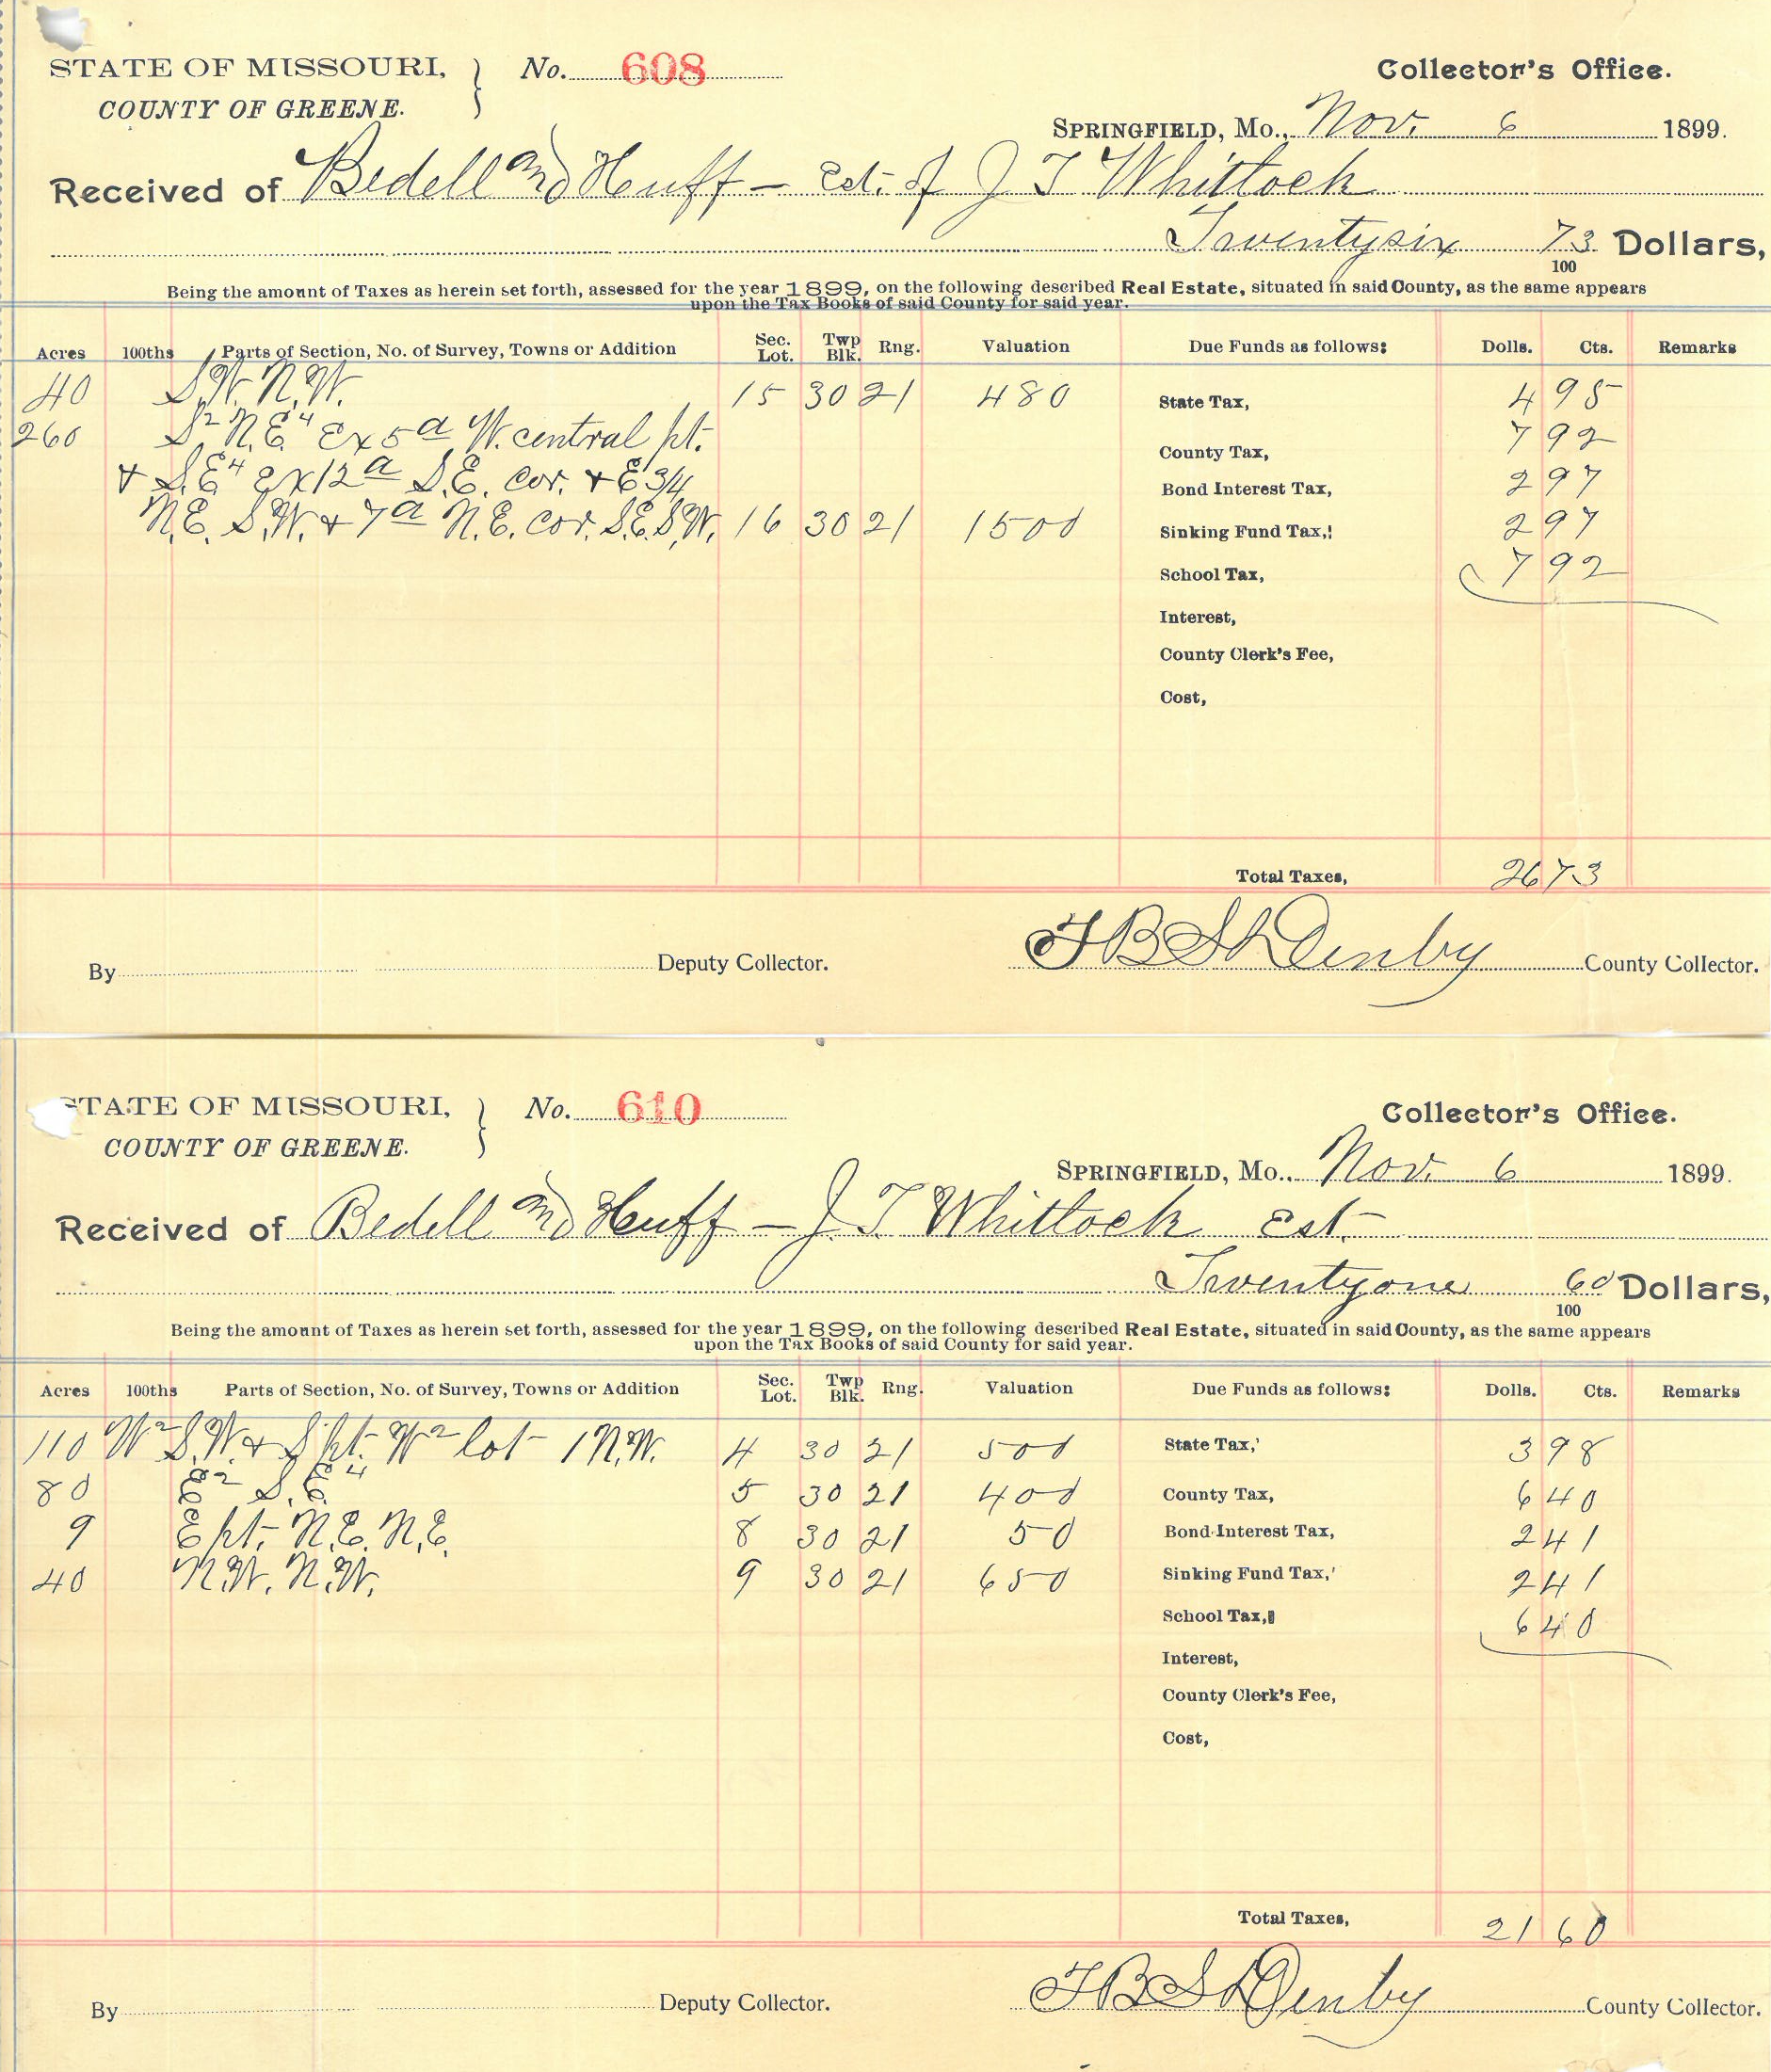 STATE OF MISSOURI, } No. 608 Collector's Office.
COUNTY OF GREENE.
SPRINGFIELD, Mo., Nov. 6 1899.
Received of Bedell and Huff – Est. of J T Whittock
Twentysix 73/100 Dollars,
Being the amount of Taxes as herein set forth, assessed for the year 1899, on the following described Real Estate, situated in said County, as the same appears
upon the Tax Books of said County for said year.
Acres 100ths Parts of Section, No. of Survey, Towns or Addition Sec. Lot. Twp Blk. Rng. Valuation Due Funds as follows: Dolls. Cts. Remarks
40 S.W. N.W. 15 30 21 480 State Tax, 4 95
260 S2 N.E4 Ex 5a W. central pt. County Tax, 7 92
& S.E4 Ex 12a S.E. cor. & E 3/4 Bond Interest Tax, 2 97
N.E. S.W. & 7a N.E. cor. S.E. S.W. 16 30 21 1500 Sinking Fund Tax, 2 97
School Tax, 7 92
Interest,
County Clerk's Fee,
Cost,
Total Taxes, 26 73
By Deputy Collector. County Collector.
STATE OF MISSOURI, } No. 610 Collector's Office.
COUNTY OF GREENE.
SPRINGFIELD, Mo., Nov. 6 1899.
Received of Bedell and Huff – J. T. Whittock Est.
Twentyone 60/100 Dollars,
Being the amount of Taxes as herein set forth, assessed for the year 1899, on the following described Real Estate, situated in said County, as the same appears
upon the Tax Books of said County for said year.
Acres 100ths Parts of Section, No. of Survey, Towns or Addition Sec. Lot. Twp Blk. Rng. Valuation Due Funds as follows: Dolls. Cts. Remarks
110 W2 S.W. & S pt. W2 lot 1 N.W. 4 30 21 500 State Tax, 3 98
80 E2 S.E4 5 30 21 400 County Tax, 6 40
9 E pt. N.E. N.E. 8 30 21 50 Bond Interest Tax, 2 41
40 N.W. N.W. 9 30 21 650 Sinking Fund Tax, 2 41
School Tax, 6 40
Interest,
County Clerk's Fee,
Cost,
Total Taxes, 21 60
By Deputy Collector. County Collector.